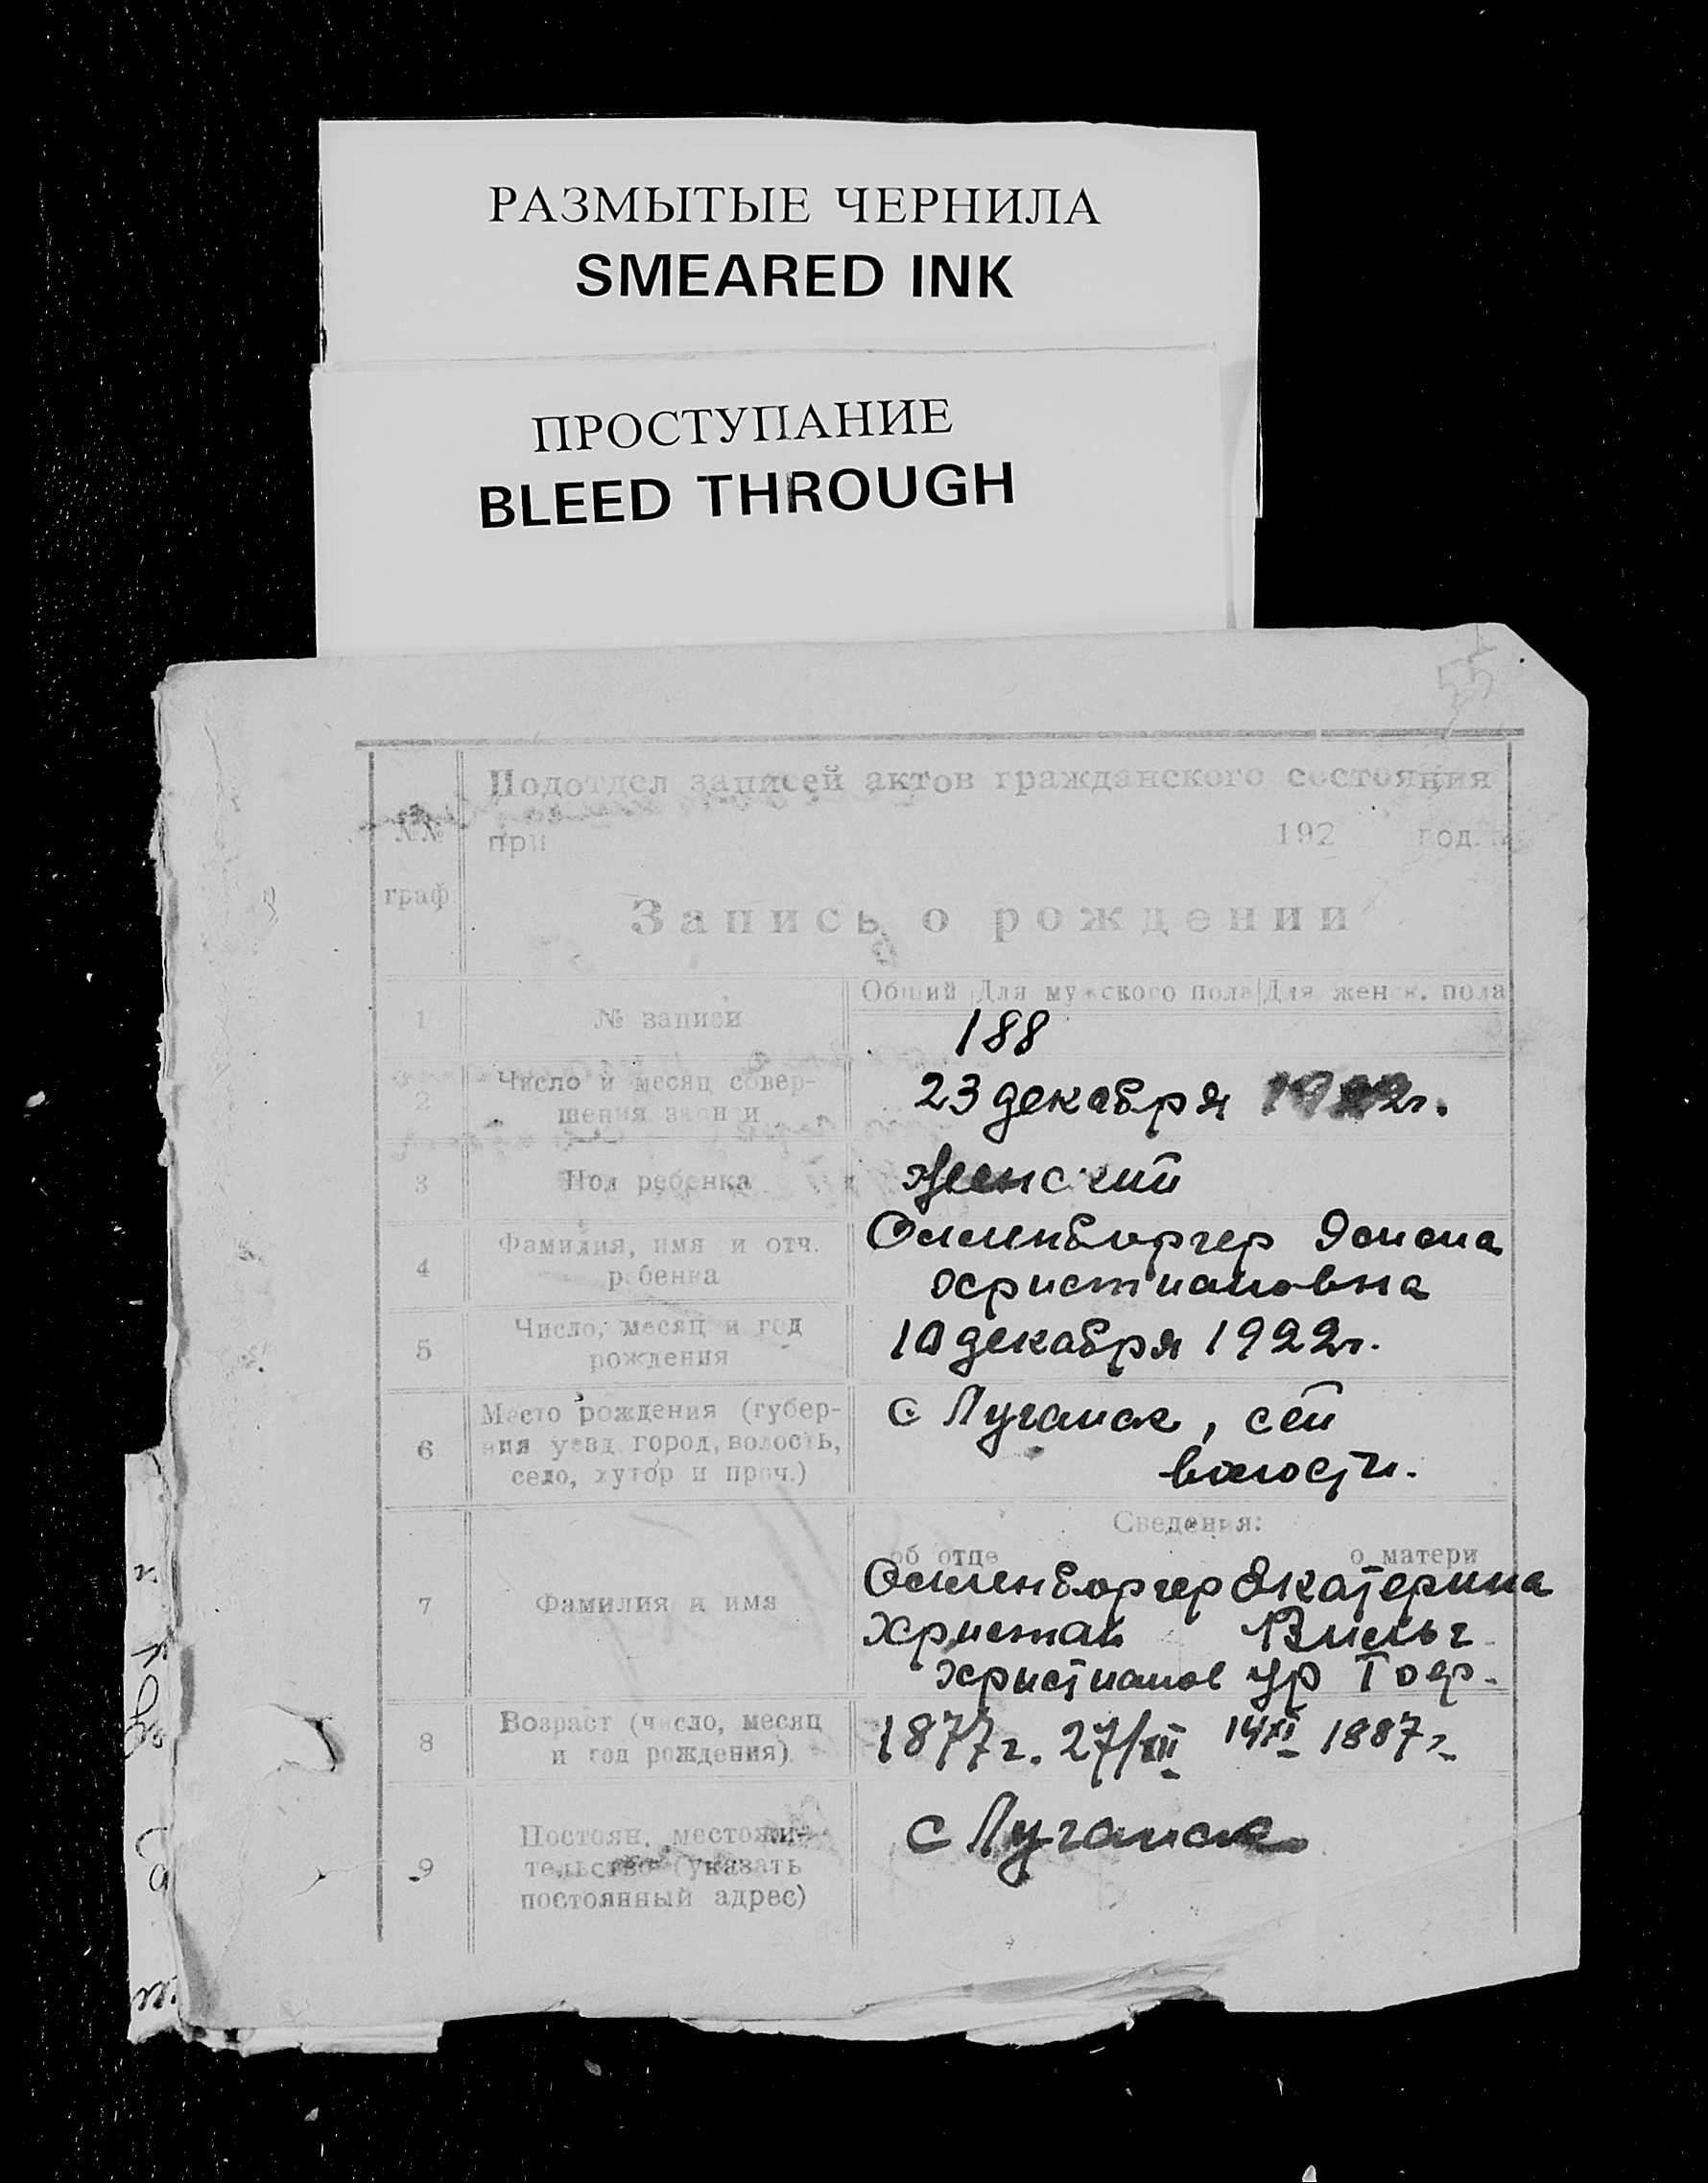 РАЗМЫТЫЕ ЧЕРНИЛА
SMEARED INK
ПРОСТУПАНИЕ
BLEED THROUGH
55
Подотдел записей актов гражданского состояния
№№ граф
при 192 год
Запись о рождении
Общий Для мужского пола Для женск. пола
1 № записи 188
2 Число и месяц совер-
шения записи 23 декабря 1922г.
3 Пол ребенка женский
4 Фамилия, имя и отч.
ребенка Христиановна
5 Число, месяц и год
рождения 10 декабря 1922г.
6 Место рождения (губер-
ния уезд город, волость,
село, хутор и проч.) с Луганск, сей
волости.
Сведения:
об отце о матери
7 Фамилия и имя Екатерина
Христиан Вильг
Христианов ур
8 Возраст (число, месяц
и год рождения) 1877г. 27/XII 14 XI 1887г.
9 Постоян. местожи-
тельство (указать
постоянный адрес) с Луганск